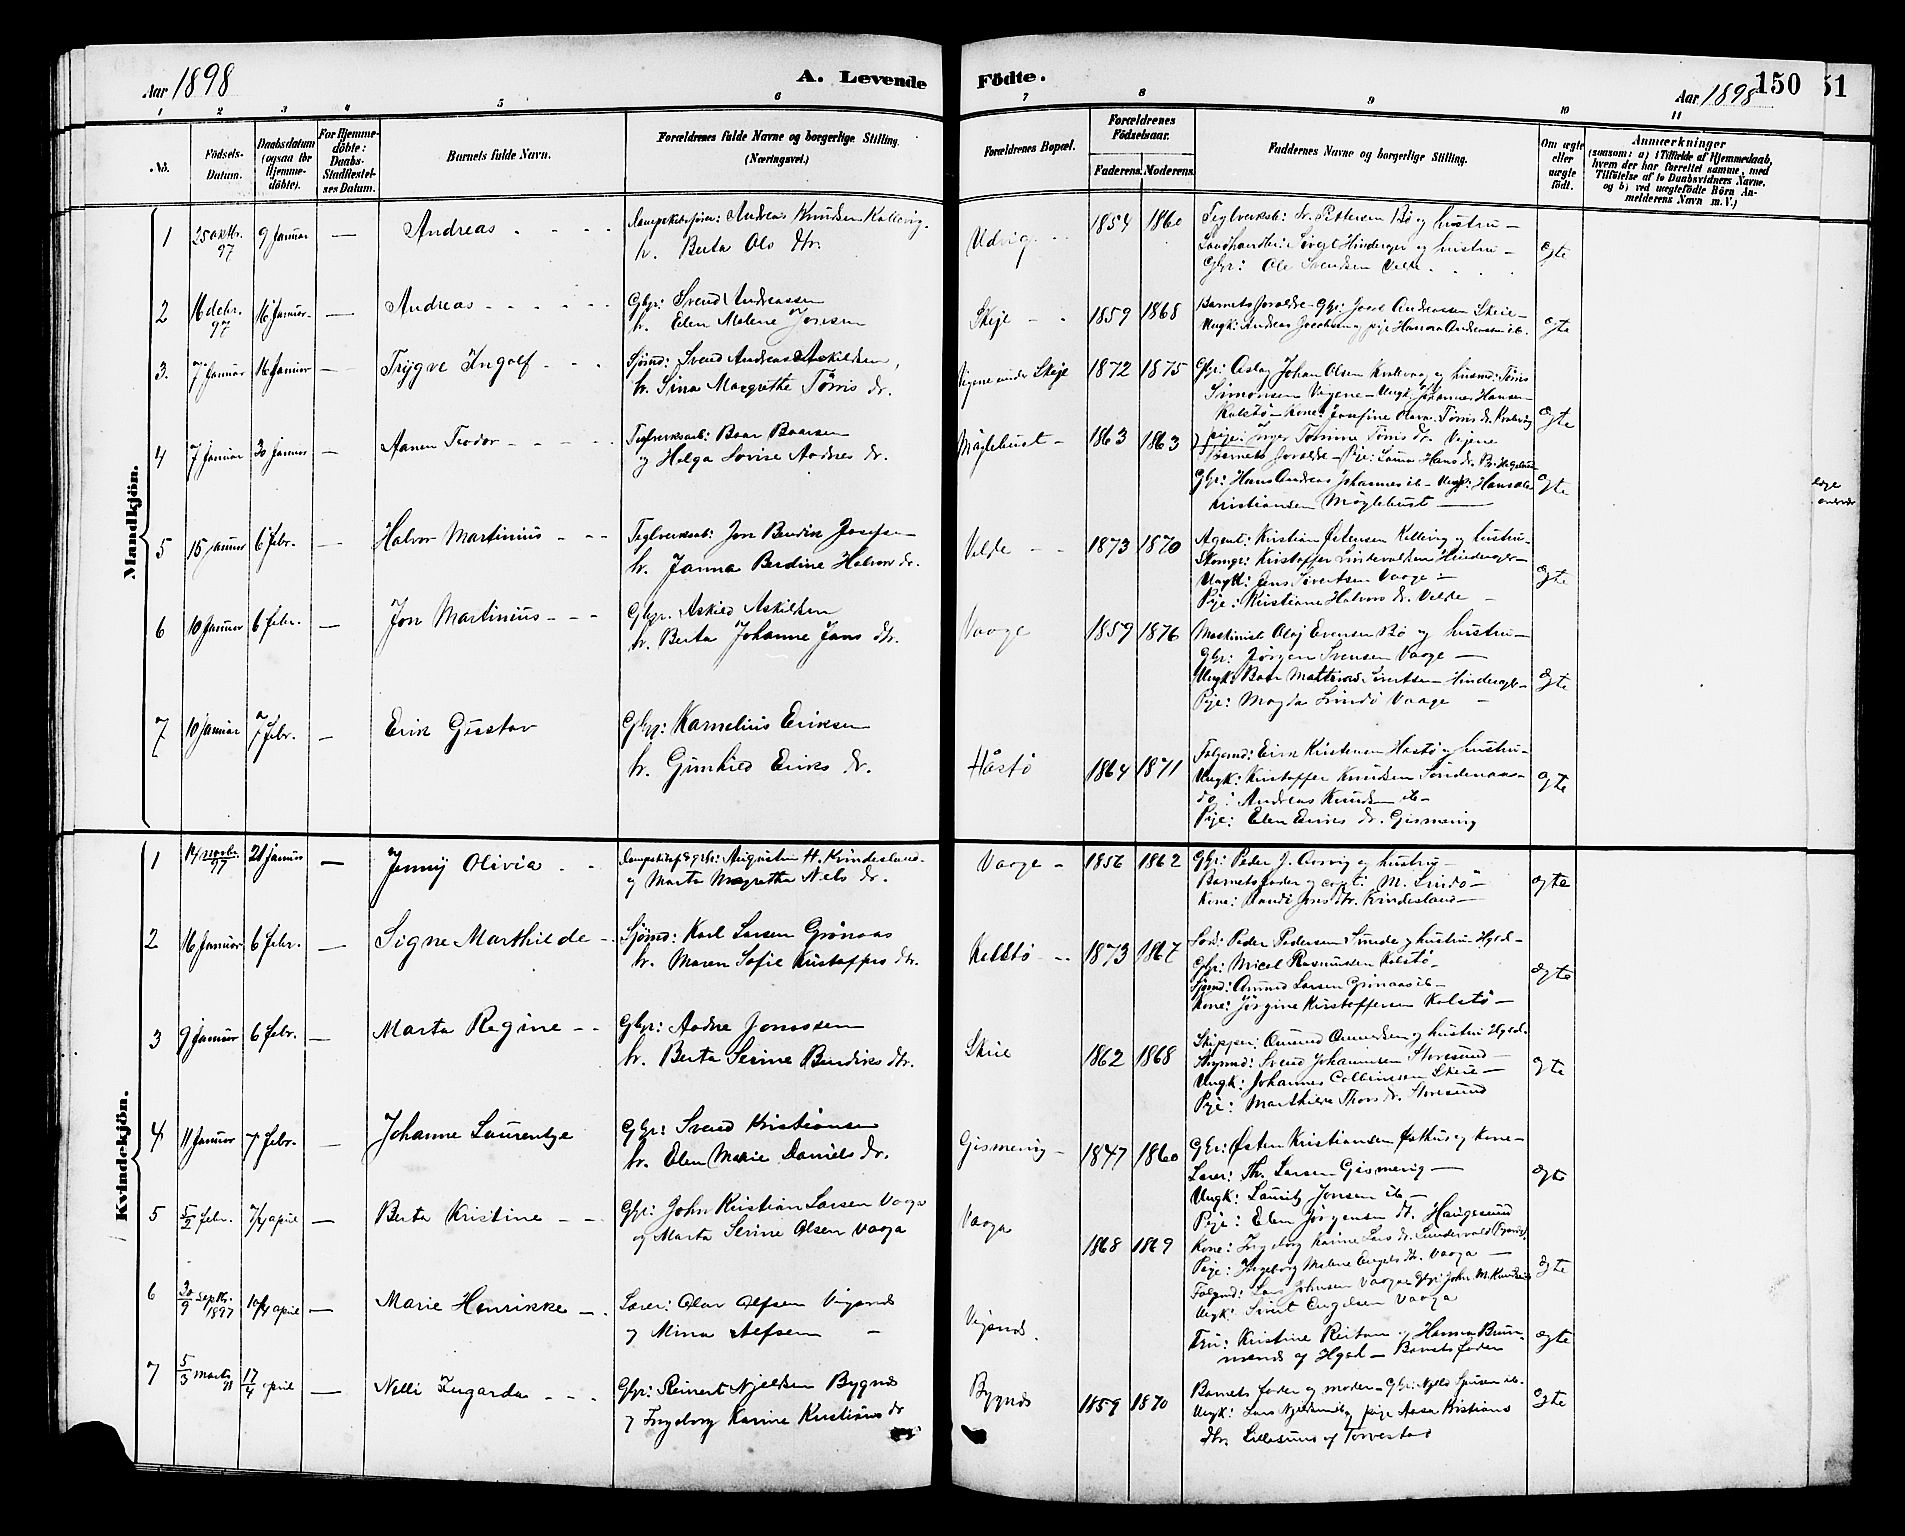 Aar 1898
A. Levende
Födte.
Aar 1898
150
51
1 2 3 4 5 6 7 8 9 10 11
No.
Födsels-Datum.
Daabsdatum (ogsaa for Hjemmedöbte).
For Hjemmedöbte: Daabs-Stadfæstelses Datum.
Barnets fulde Navn.
Forældrenes fulde Navne og borgerlige Stilling. (Næringsvei.)
Forældrenes Bopæl.
Forældrenes Födselsaar.
Faderens. Moderens.
Faddernes Navne og borgerlige Stilling.
Om ægte eller uægte födt.
Anmærkninger
(saasom: a) i Tilfælde af Hjemmedaab, hvem der har forrettet samme, med Tilföielse af to Daabsvidners Navne, og b) ved uægtefödte Börn Anmelderens Navn m. V.)
Mandkjön.
1 25 oktbr. 97 9 Januar — Andreas
Andreas Knudsen Kallevig.
h. Berta Ols dtr.
Udvig 1854 1860
Teglverksb: Fr. Pettersen Bø og hustru —
og hustru —
Gbr: Ole Svendsen Velde
Egte
2 16 debr. 97 16 Januar — Andreas
Gbr: Svend Andreassen
h. Elen Malene Jonsen
Skeje 1859 1868
Barnets foraldre — Gbr: Joed Andreassen Skeie —
Ungk: Andreas Jacobsen og pige Hanna Andreassen ib.
Egte
3. 7 Januar 16 Januar — Trygve Ingolf
Sjømd: Svend Andreas Askildsen,
h. Sina Margrethe Tørris dr.
Vigene under Skeje 1872 1875
Gbr: Aslag Johan Olsen og husmd: Tørris
Simonsen Vigene — Ungk: Johannes Hansen
Kolstø — Kone: Josefine Tørris dr.
pige: Inger Tomine Tørris dr. Vigene
Egte
4 7 Januar 30 Januar — Aanen Teodor
Teglverksarb: Baar Baarsen
og Helga Lovise Andres dr.
Møglebust 1863 1863
Barnets foraldre — Pige: Laura Hans dr.
Gbr: Hans Andreas Johannes ib — Ungk: Hans Ole
Kristiansen Møglebust —
Egte
5 15 Januar 6 febr. — Halvor Martinius
Teglverksarb: Jon Bendix Josefsen
h. Janna Berdine Halvor dr.
Velde 1873 1870
Agent: Kristian Østensen Kallevig og hustru —
Skomgr: Kristoffer Hinderager —
Ungk: Jens Sivertsen Vaage —
Pige: Kristiane Halvors dr. Velde —
Egte
6 10 Januar 6 febr. — Jon Martinius
Gbr. Askild Askildsen
h. Berta Johanne Jans dtr.
Vaage 1859 1876
Maskinist Olaf Evensen Bø og hustru —
Gbr: Jørgen Svensen Vaage —
Ungk: Baar Mathias Sivertsen Hinderager —
Pige: Magda Lindø Vaage —
Egte
7 10 Januar 7 febr. — Erik Gustav
Gbr: Kornelius Eriksen
h. Gunhild Eriks dr.
Håstø 1864 1871
Folgemd: Erik Kristensen Hastø og hustru —
Ungk: Kristoffer Knudsen
do: Andreas Knudsen ib —
Pige: Elen Eriks dr. Gismervig
Egte
Kvindekjön.
1 14 novbr. 97 21 Januar — Jenny Olivia
Augustin H. Kvindesland.
og Marta Magretha Nels dr.
Vaage — 1856 1862
Gbr: Peder J. Aarvig og hustru —
Barnets fader og M. Lindø —
Kone: Jens dtr. Kvindesland —
Egte
2 16 Januar 6 febr. — Signe Marthilde
Sjømd: Karl Larsen Grønaas
h. Maren Sofie Kristoffers dtr.
Kolstø 1873 1867
Peder Pedersen og hustru Hgsd —
Gbr: Micel Rasmussen Kolstø —
Sjømd: Amund Larsen Grønaas ib —
Kone: Jørgine Kristoffersen Kolstø —
Egte
3 9 Januar 6 febr. — Marta Regine
Gbr: Aadne Jonassen
h. Berta Serine Bendiks dtr.
Skeie 1862 1868
Skipper: Omund Omundsen og hustru Hgsd.
Svend Johannesen Storesund —
Ungk: Johannes Skeie —
Pige: Marthilde Thors dr. Storesund
Egte
4 11 Januar 7 febr. — Johanne Laurentze
Gbr: Svend Kristiansen
h. Elen Marie Daniels dr.
Gismervig — 1847 1860
Gbr: Østen Kristiansen Østhus og Kone —
Lærer: Th. Larsen Gismervig —
Ungk: Lauritz Jonsen ib —
Pige: Elen Jørgensen dt. Haugesund
Egte
5 5/2 febr. 7/4 april — Berta Kristine
Gbr: John Kristian Larsen Vaage
og Marta Serine Olsen Vaaga
Vaaga 1868 1869
Kone: Ingeborg Karine Lars dr.
Pige: Ingeborg Malene Engels dtr. Vaaga —
Folgmd: Lars Johnsen Vaaga Gbr: John M. Knudsen
Ungk: Sivert Engelsen Vaaga
Egte
6 30/9 septbr. 1897 10/4 april — Marie Henrikke
Lærer: Olav Alfsen Vigsnes
og Mina Alfsen —
Vigsnes.
Fru: Kristine Reitan og Hanna Brun-
mands af Hgsd — Barnets fader
Egte
7 5/3 marts 98 17/4 april — Nelli Ingarda
Gbr: Reinert Njeldsen Bygnes
og Ingeborg Karine Kristians dr
Bygnes 1859 1870
Barnets fader og moder — Gbr: Njeld ib.
Ungk: Lars Njeldsen ib og pige Aasa Kristians
dtr. Lillesund af Torvestad
Egte